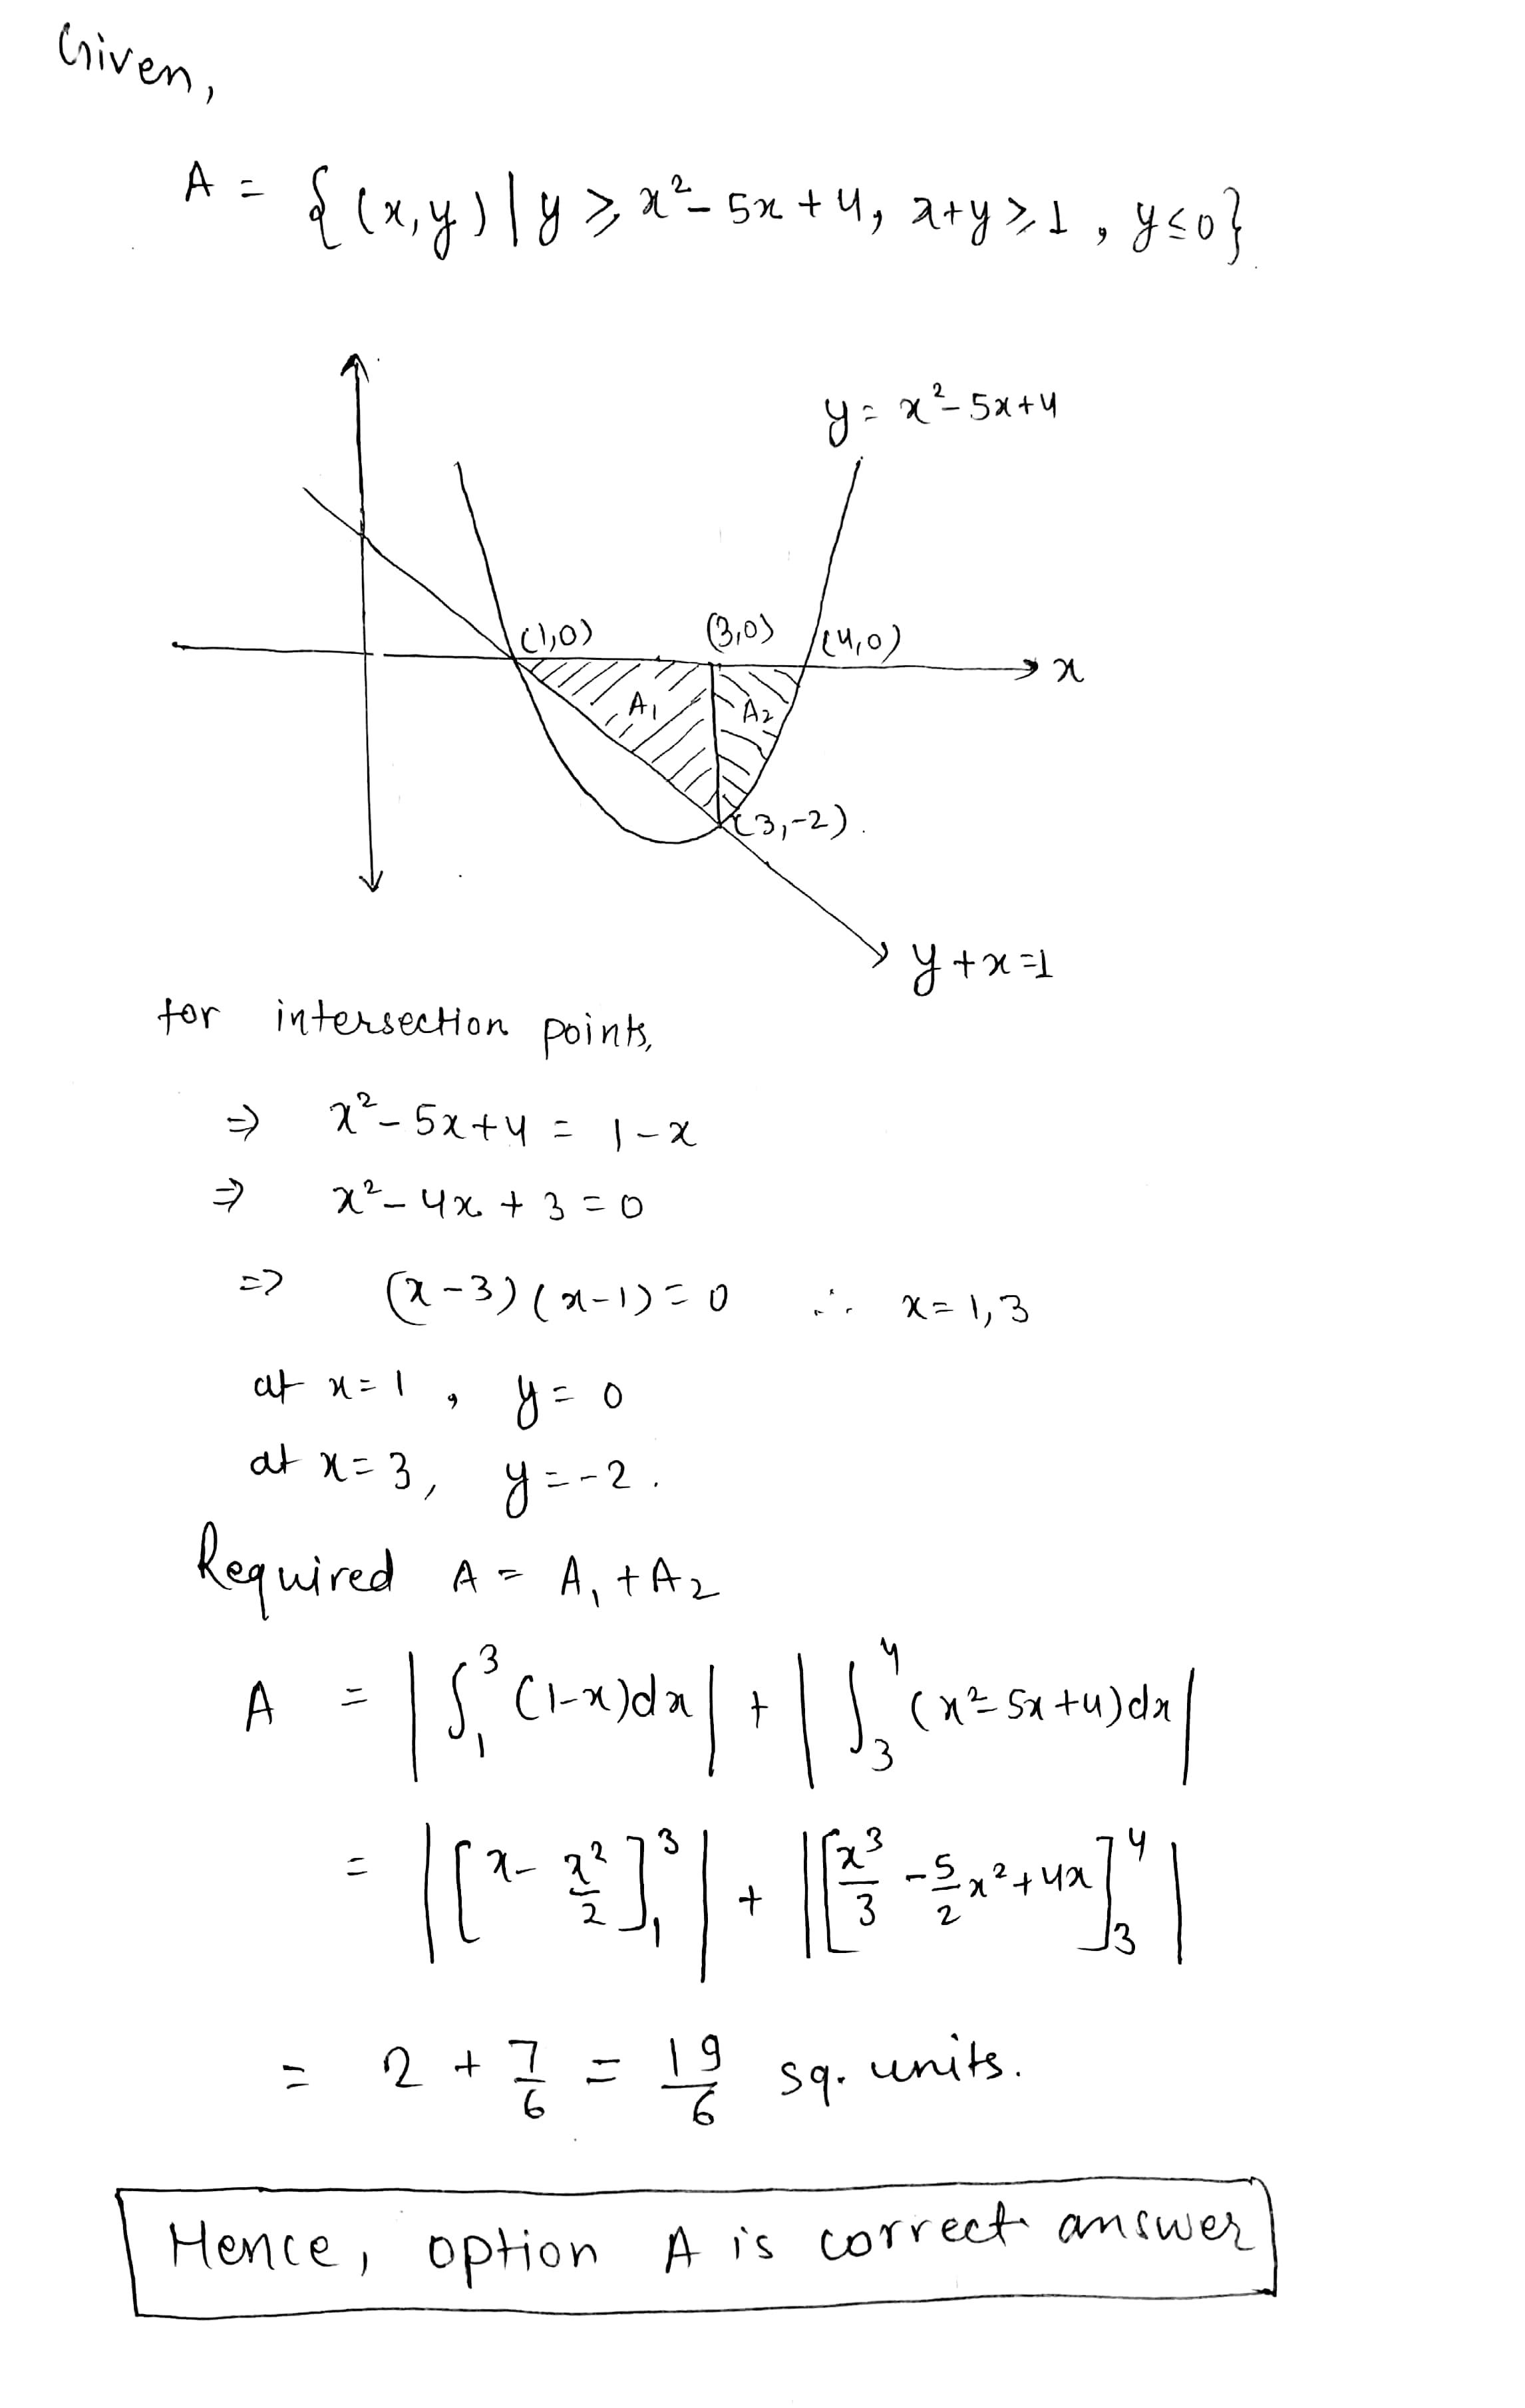 Given,
A = {(x,y) | y ≥ x² - 5x + 4, x+y ≥ 1, y ≤ 0}
y = x² - 5x + 4
(1,0) (3,0) (4,0)
x
A₁ A₂
(3,-2).
y + x = 1
for intersection points,
⇒ x² - 5x + 4 = 1 - x
⇒ x² - 4x + 3 = 0
=> (x-3)(x-1) = 0 ∴ x = 1, 3
at x = 1, y = 0
at x = 3, y = -2.
Required A = A₁ + A₂
A = |∫₁³ (1-x)dx| + |∫₃⁴ (x² - 5x + 4)dx|
= |[x - x²/2]₁³| + |[x³/3 - 5/2 x² + 4x]₃⁴|
= 2 + 7/6 = 19/6 sq. units.
Hence, option A is correct answer